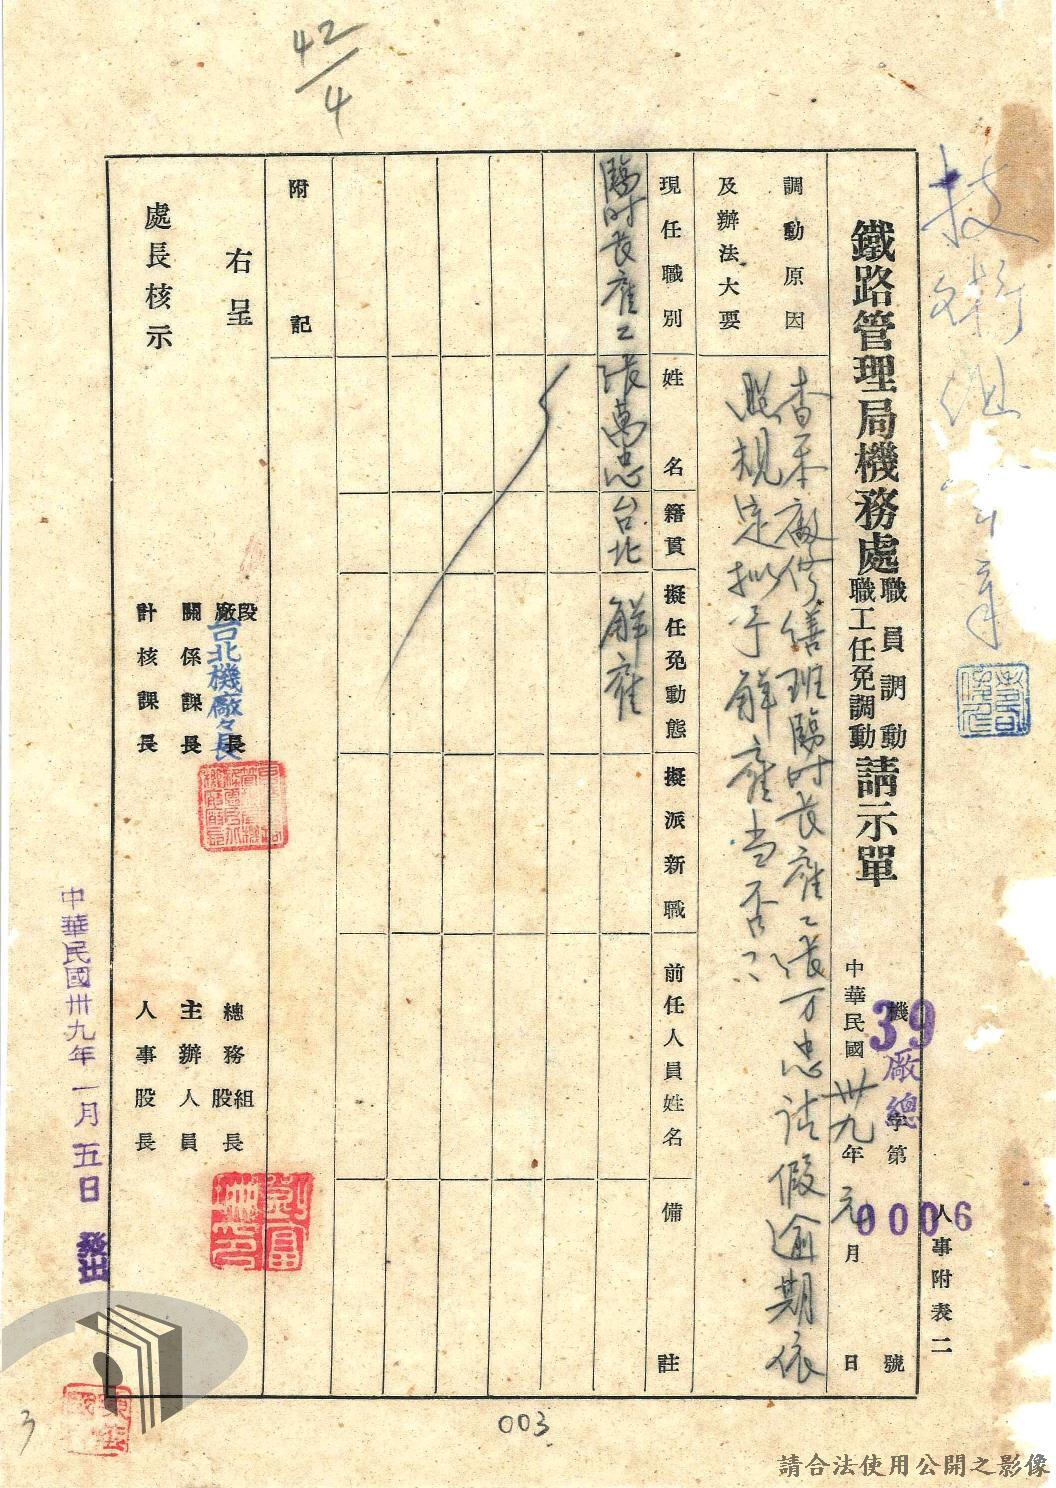 42/4
技術組
人事附表二
鐵路管理局機務處職員調動職工任免調動請示單
機39廠總字第00006號
中華民國卅九年元月 日
調動原因及辦法大要
查本廠修繕班臨时長雇工張万忠請假逾期依
照規定拟予解雇當否
現任職別
姓名
籍貫
擬任免動態
擬派新職
前任人員姓名
備註
臨时長雇工
張萬忠
台北
解雇
附記
右呈
處長核示
段廠長
台北機廠々長
關係課長
計核課長
總務組股長
主辦人員
人事股長
中華民國卅九年一月五日 發出
3
003
請合法使用公開之影像